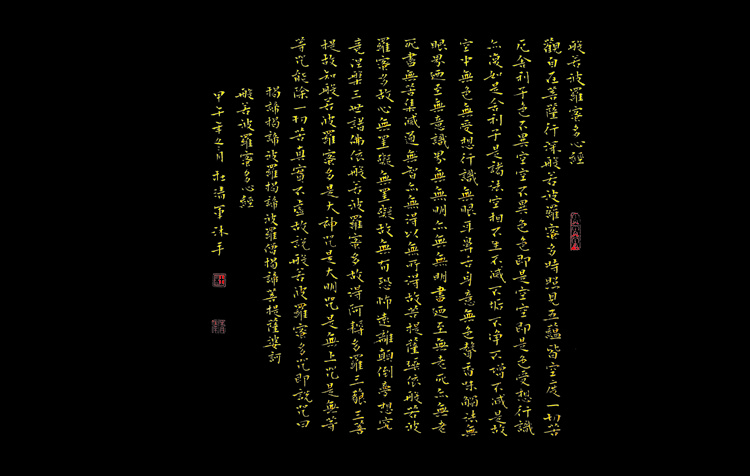 般若波羅蜜多心經
觀自在菩薩行深般若波羅蜜多時照見五蘊皆空度一切苦
厄舍利子色不異空空不異色色即是空空即是色受想行識
亦復如是舍利子是諸法空相不生不滅不垢不淨不增不減是故
空中無色無受想行識無眼耳鼻舌身意無色聲香味觸法無
眼界迺至無意識界無無明亦無無明盡迺至無老死亦無老
死盡無苦集滅道無智亦無得以無所得故菩提薩埵依般若波
羅蜜多故心無罣礙無罣礙故無有恐怖遠離顛倒夢想究
竟涅槃三世諸佛依般若波羅蜜多故得阿耨多羅三藐三菩
提故知般若波羅蜜多是大神咒是大明咒是無上咒是無等
等咒能除一切苦真實不虛故說般若波羅蜜多咒即說咒曰
揭諦揭諦波羅揭諦波羅僧揭諦菩提薩婆訶
般若波羅蜜多心經
甲午年冬月 軍沐手